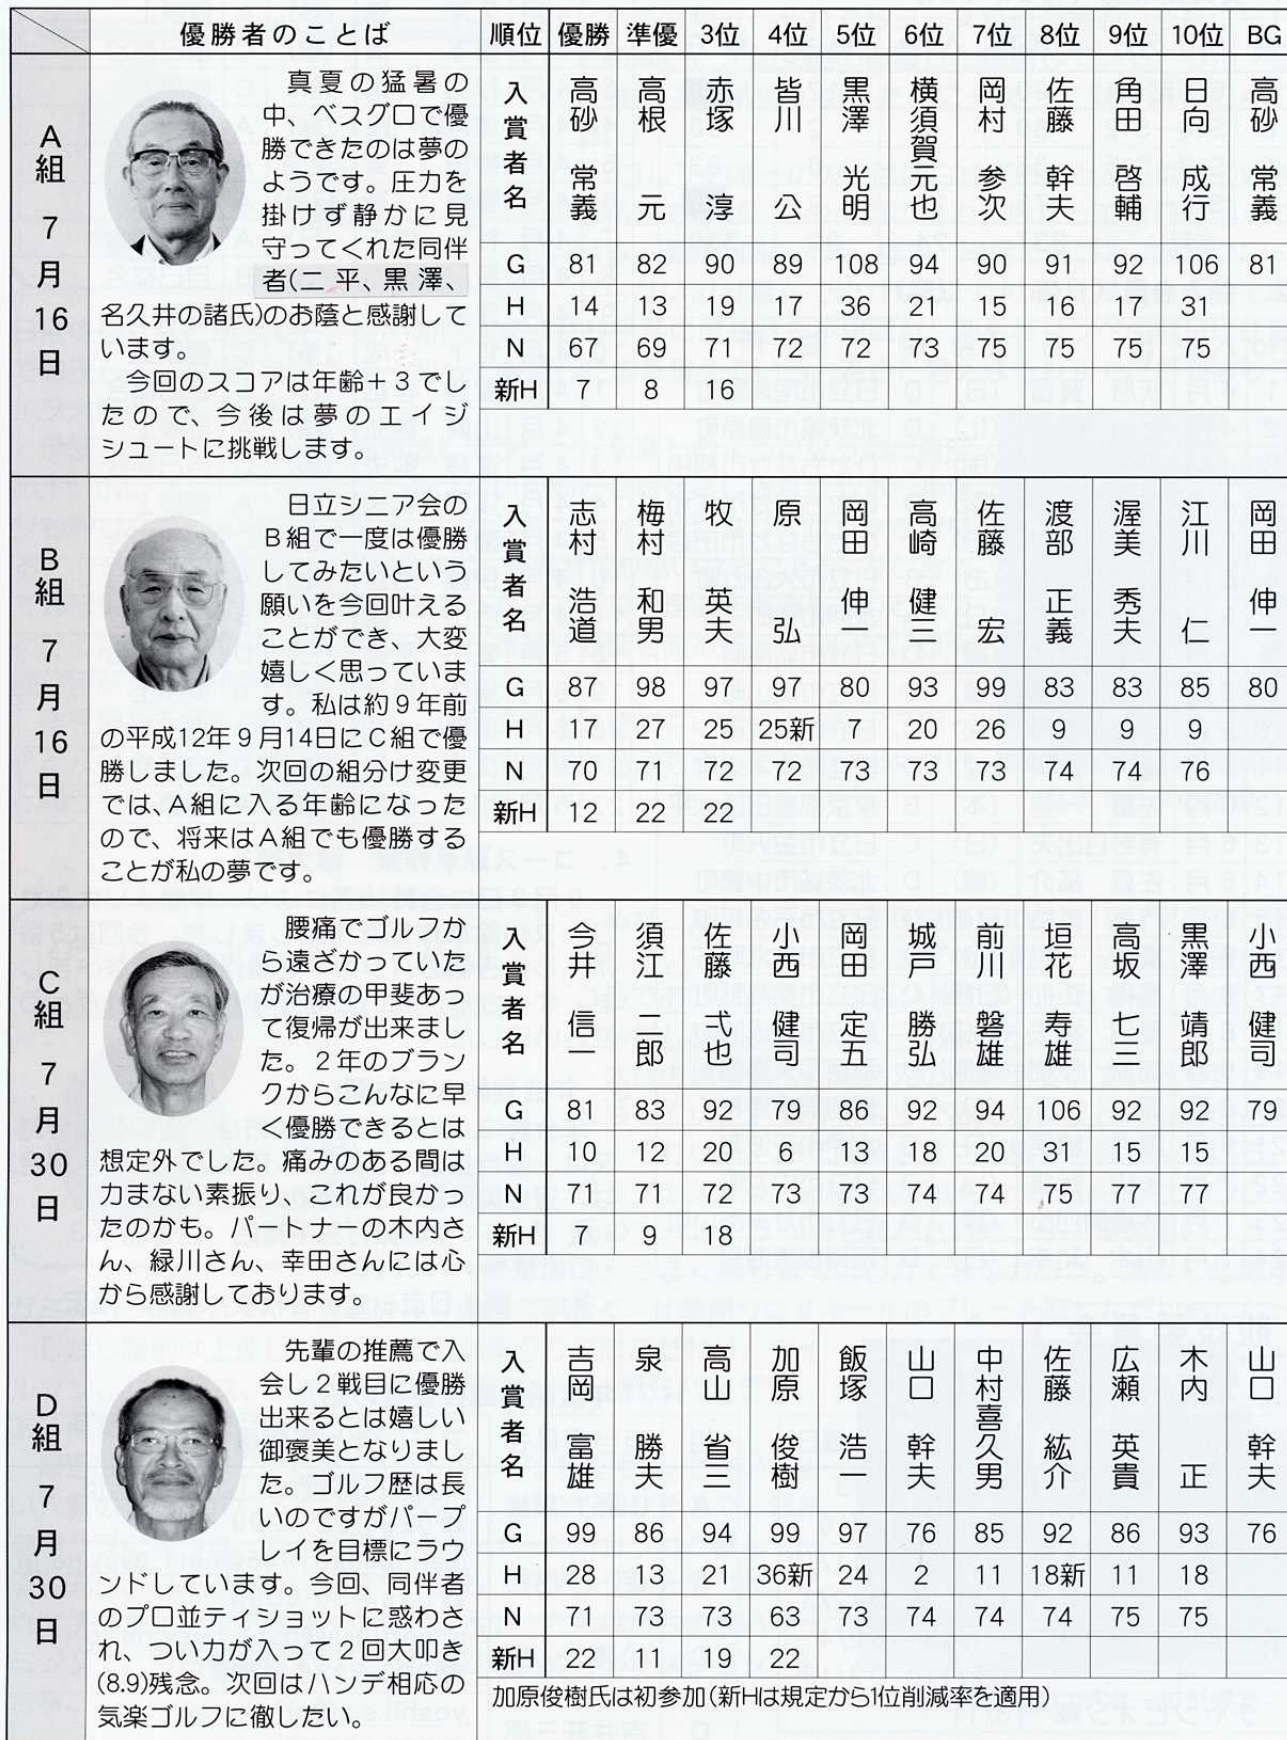 優勝者のことば 順位 優勝 準優 3位 4位 5位 6位 7位 8位 9位 10位 BG
A組 7月16日
真夏の猛暑の
中、ベスグロで優
勝できたのは夢の
ようです。圧力を
掛けず静かに見
守ってくれた同伴
者(二平、黒澤、
名久井の諸氏)のお蔭と感謝して
います。
今回のスコアは年齢＋3でし
たので、今後は夢のエイジ
シュートに挑戦します。
入賞者名 高砂常義 高根元 赤塚淳 皆川公 黒澤光明 横須賀元也 岡村参次 佐藤幹夫 角田啓輔 日向成行 高砂常義
G 81 82 90 89 108 94 90 91 92 106 81
H 14 13 19 17 36 21 15 16 17 31
N 67 69 71 72 72 73 75 75 75 75
新H 7 8 16
B組 7月16日
日立シニア会の
B組で一度は優勝
してみたいという
願いを今回叶える
ことができ、大変
嬉しく思っていま
す。私は約9年前
の平成12年9月14日にC組で優
勝しました。次回の組分け変更
では、A組に入る年齢になった
ので、将来はA組でも優勝する
ことが私の夢です。
入賞者名 志村浩道 梅村和男 牧英夫 原弘 岡田伸一 高崎健三 佐藤宏 渡部正義 渥美秀夫 江川仁 岡田伸一
G 87 98 97 97 80 93 99 83 83 85 80
H 17 27 25 25新 7 20 26 9 9 9
N 70 71 72 72 73 73 73 74 74 76
新H 12 22 22
C組 7月30日
腰痛でゴルフか
ら遠ざかっていた
が治療の甲斐あっ
て復帰が出来まし
た。2年のブラン
クからこんなに早
く優勝できるとは
想定外でした。痛みのある間は
力まない素振り、これが良かっ
たのかも。パートナーの木内さ
ん、緑川さん、幸田さんには心
から感謝しております。
入賞者名 今井信一 須江二郎 佐藤弌也 小西健司 岡田定五 城戸勝弘 前川磐雄 垣花寿雄 高坂七三 黒澤靖郎 小西健司
G 81 83 92 79 86 92 94 106 92 92 79
H 10 12 20 6 13 18 20 31 15 15
N 71 71 72 73 73 74 74 75 77 77
新H 7 9 18
D組 7月30日
先輩の推薦で入
会し2戦目に優勝
出来るとは嬉しい
御褒美となりまし
た。ゴルフ歴は長
いのですがパープ
レイを目標にラウ
ンドしています。今回、同伴者
のプロ並ティショットに惑わさ
れ、つい力が入って2回大叩き
(8.9)残念。次回はハンデ相応の
気楽ゴルフに徹したい。
入賞者名 吉岡富雄 泉勝夫 高山省三 加原俊樹 飯塚浩一 山口幹夫 中村喜久男 佐藤紘介 広瀬英貴 木内正 山口幹夫
G 99 86 94 99 97 76 85 92 86 93 76
H 28 13 21 36新 24 2 11 18新 11 18
N 71 73 73 63 73 74 74 74 75 75
新H 22 11 19 22
加原俊樹氏は初参加(新Hは規定から1位削減率を適用)